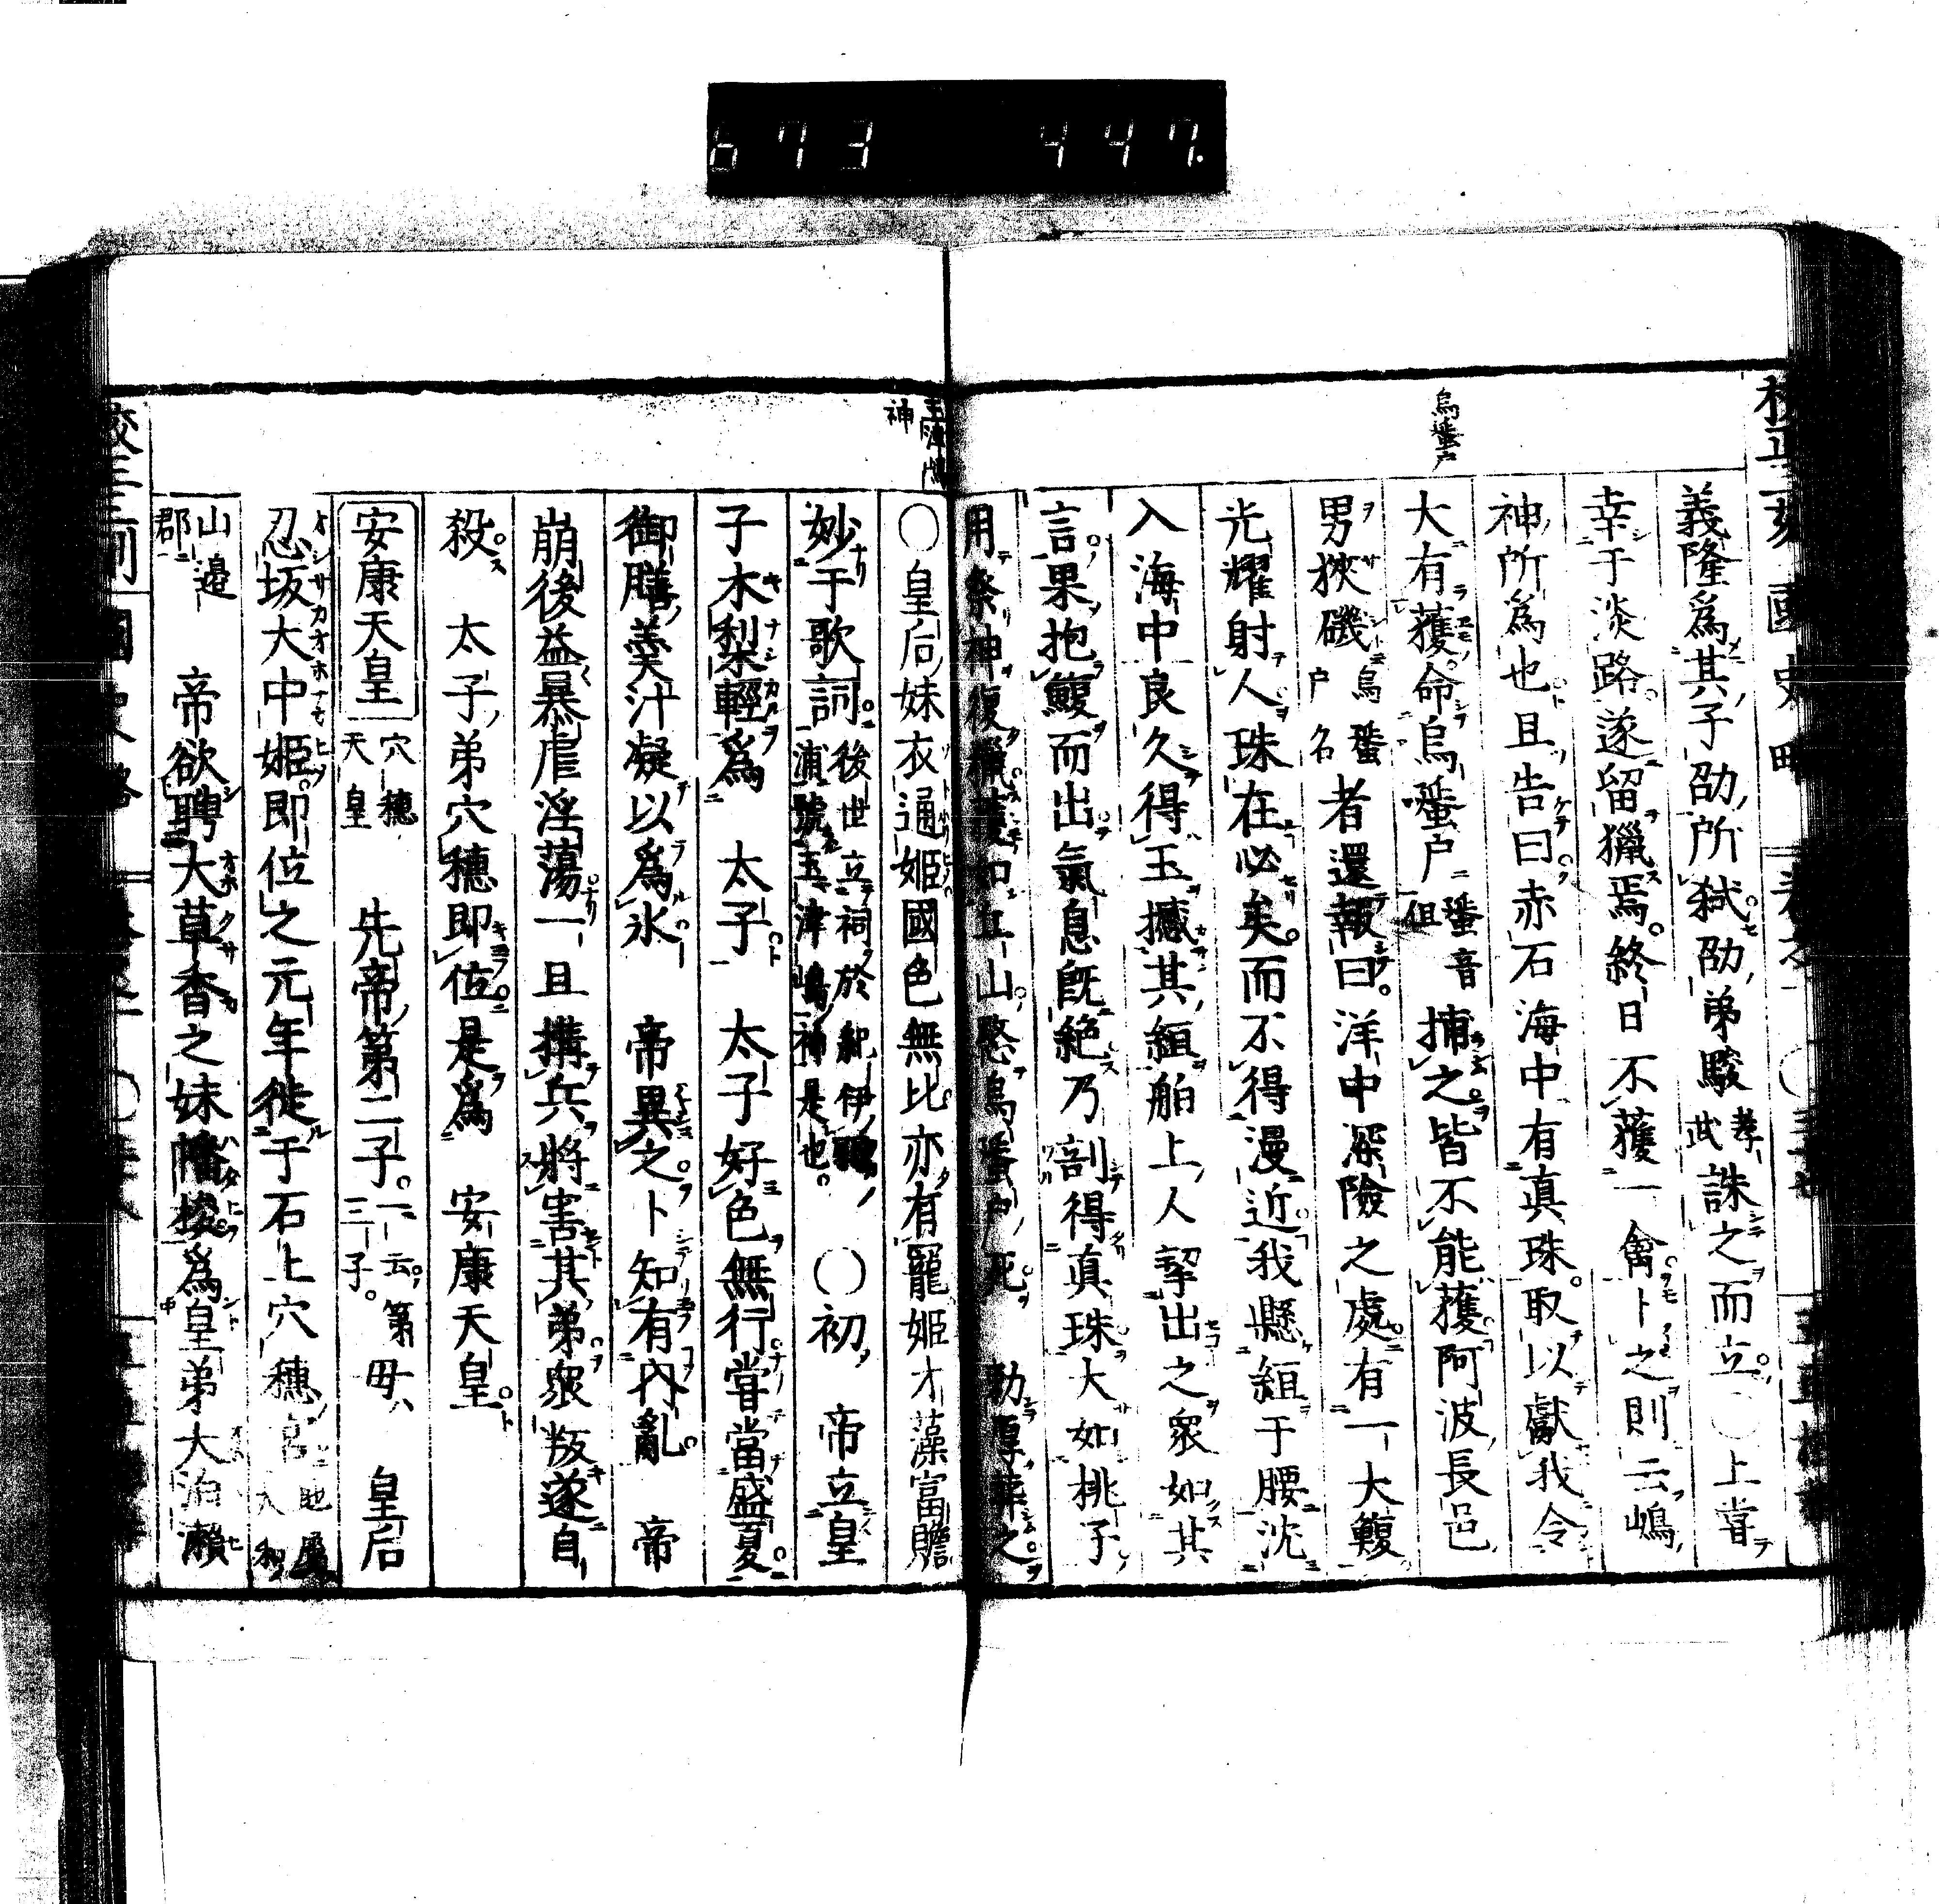 673 447.
烏蜑戸
義隆爲其子劭所弑劭弟駿孝武誅之而立○上嘗
幸于淡路遂留獵焉終日不獲一禽卜之則云嶋
神所爲也且告曰赤石海中有真珠取以獻我令
大有獲命烏蜑户蜑音但捕之皆不能獲阿波長邑
男狹磯烏蜑户名者還報曰洋中深險之處有一大鰒
光耀射人珠在必矣而不得漫近我懸絙于腰沈
入海中良久得玉撼其絙舶上人挐出之衆如其
言果抱鰒而出氣息既絶乃剖得真珠大如桃子
用祭神復獵獲如丘山愍烏蜑户死　勅厚葬之
玉津嶋神
○皇后妹衣通姫國色無比亦有寵姫才藻富贍
妙于歌詞後世立祠於紀伊浦號玉津嶋神是也　○初　帝立皇
子木梨輕爲　太子　太子好色無行嘗當盛夏
御膳羹汁凝以爲氷　帝異之卜知有内亂　帝
崩後益暴虐淫蕩一且搆兵將害其弟衆叛遂自
殺　太子弟穴穗即位是爲　安康天皇
安康天皇穴穗天皇　先帝第二子一云第三子母　皇后
忍坂大中姫即位之元年徙于石上穴穗宮地屬大和
山邉郡　帝欲聘大草香之妹幡梭爲皇弟大泊瀬